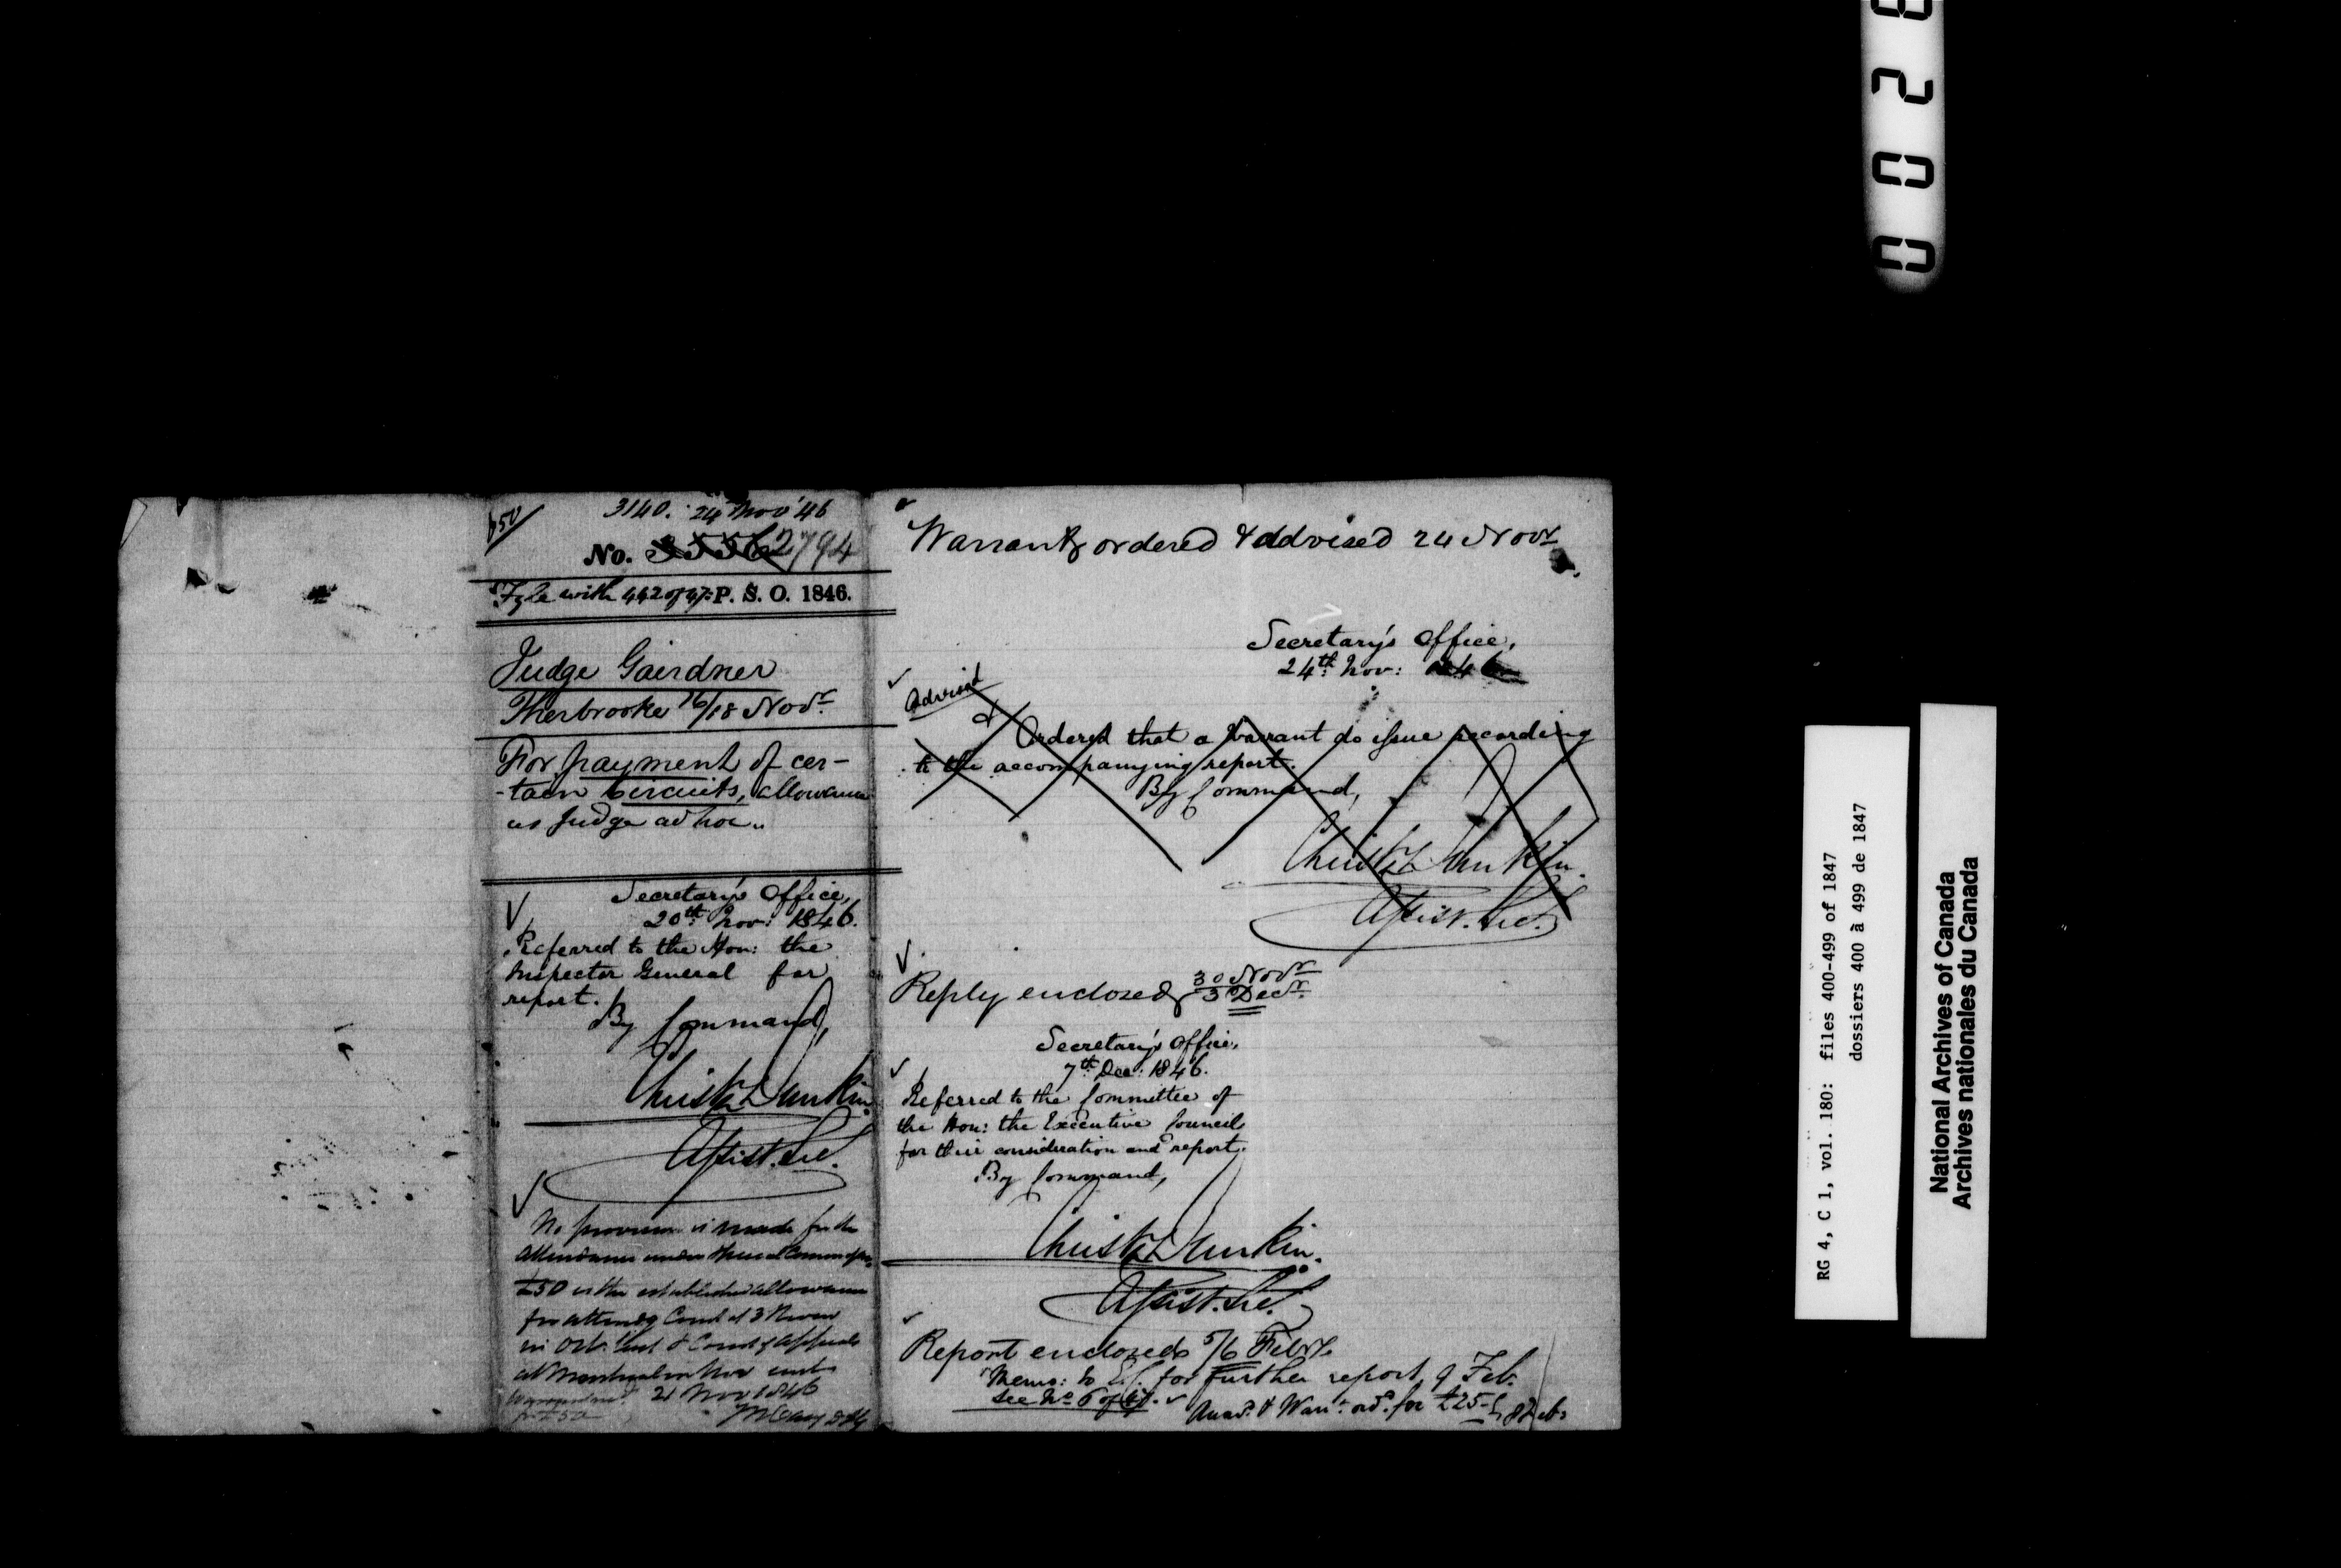 £50/
3140. 24 Nov '46
No. 3556 2794
Fyle with 442 of 47. P. S. O. 1846.
Judge Gairdner
Sherbrooke 16/18 Novr.
For payment of cer-
-tain Circuits, allowance
as Judge ad hoc.
Secretary's Office,
20th Nov: 1846.
Referred to the Hon: the
Inspector General for
report.
By Command,
Christr Dunkin.
Assist. Sec.
No provision is made for the
attendance under special Commission.
£50 is the established allowance
for attendg Court at 3 Rivers
in Octr. last & Court of Appeals
at Montreal in Nov
21 Nov 1846
for £50
Warrants ordered & advised 24 Novr
Secretary's Office,
24th Nov: 1846
Advised
& Ordered that a Warrant do issue according
to the accompanying report.
By Command,
Christr Dunkin.
Assist. Sec.
Reply enclosed 30 Novr
3 Decr.
Secretary's Office,
7th Dec: 1846.
Referred to the Committee of
the Hon: the Executive Council
for their consideration and report.
By Command,
Christr Dunkin.
Assist. Sec.
Report enclosed 5/6 Feby.
Memo: to E.C. for further report, 9 Feb.
See No 6 of 47.
& Wart. ord. for £25
0028
RG 4, C 1, vol. 180: files 400-499 of 1847
dossiers 400 à 499 de 1847
National Archives of Canada
Archives nationales du Canada